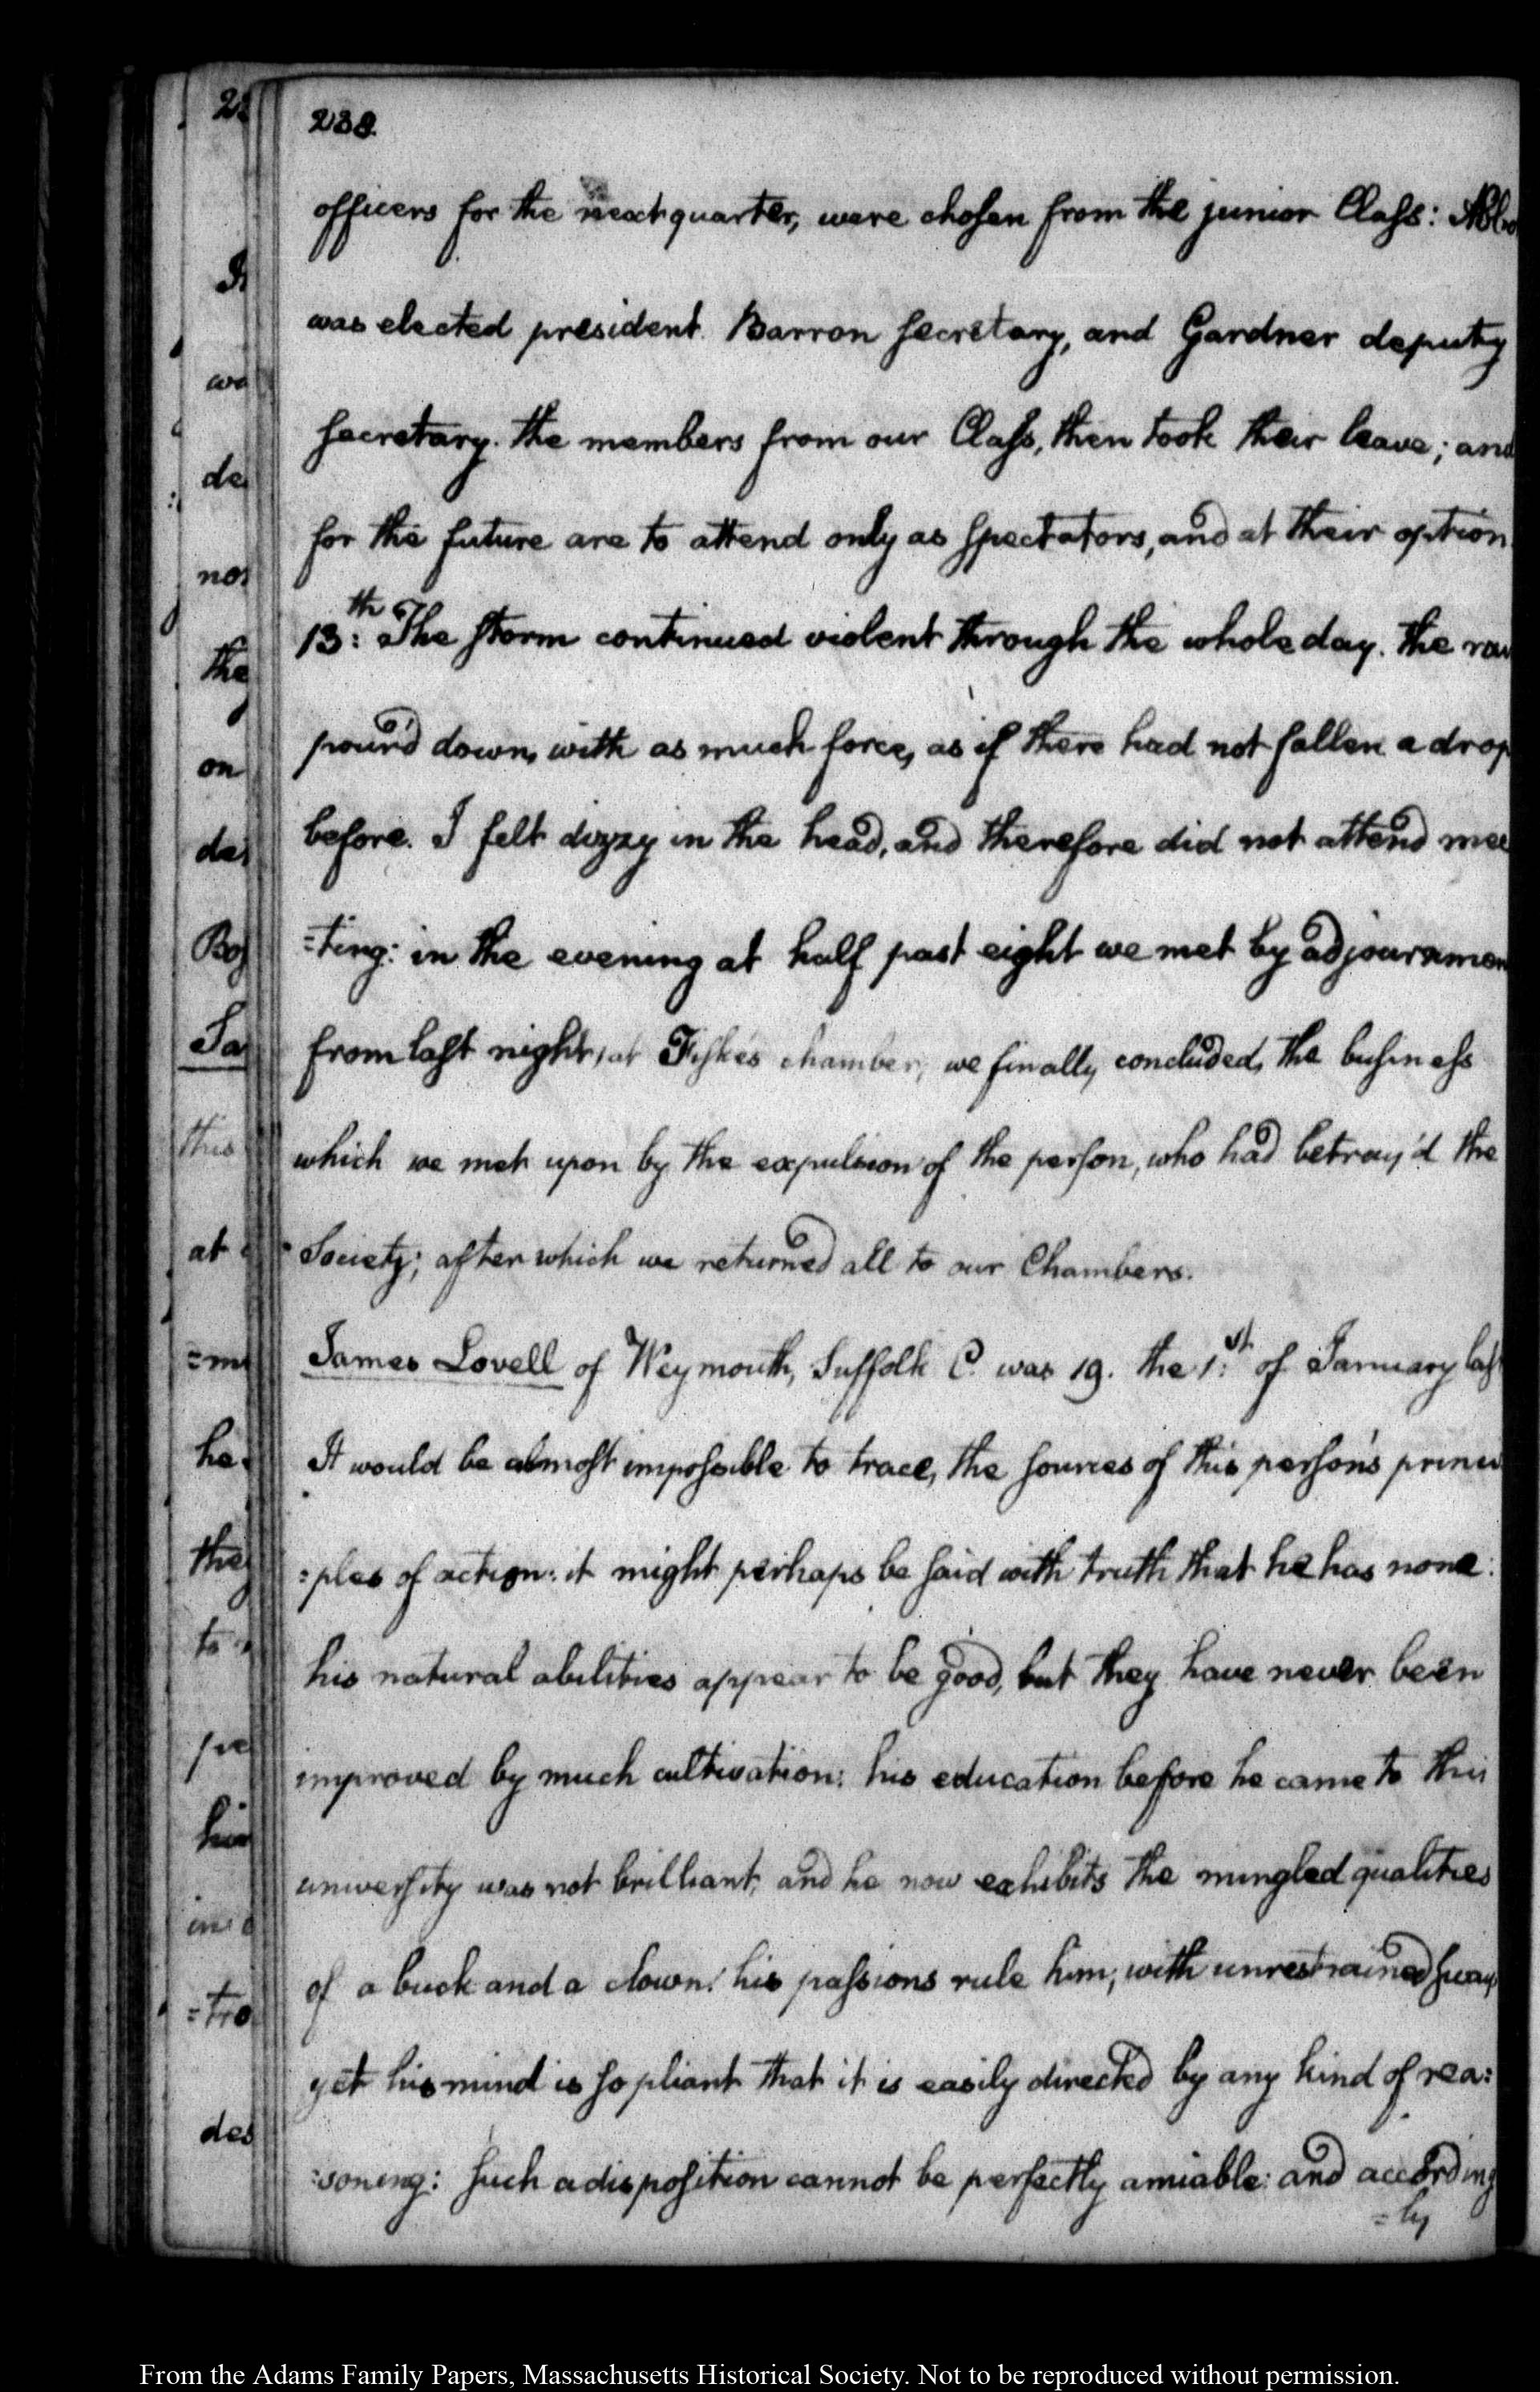 238.
officers for the next quarter, were chosen from the junior Class: Abbo
was elected president. Barron secretary, and Gardner deputy
secretary. the members from our Class, then took their leave; and
for the future are to attend only as spectators, and at their option.
13:th The storm continued violent through the whole day. the rai
pour'd down, with as much force, as if there had not fallen a drop
before. I felt dizzy in the head, and therefore did not attend mee
=ting: in the evening at half past eight we met by adjournmen
from last night, at Fiske's chamber, we finally concluded, the business
which we met upon by the expulsion of the person, who had betray'd the
Society; after which we returned all to our Chambers.
James Lovell of Weymouth, Suffolk C. was 19. the 1:st of January last
It would be almost impossible to trace, the sources of this person's princi
=ples of action: it might perhaps be said with truth that he has none:
his natural abilities appear to be good, but they have never been
improved by much cultivation: his education before he came to this
university was not brilliant, and he now exhibits the mingled qualities
of a buck and a clown: his passions rule him, with unrestrained sway
yet his mind is so pliant that it is easily directed by any kind of rea=
=soning: such a disposition cannot be perfectly amiable: and according
=ly
From the Adams Family Papers, Massachusetts Historical Society. Not to be reproduced without permission.